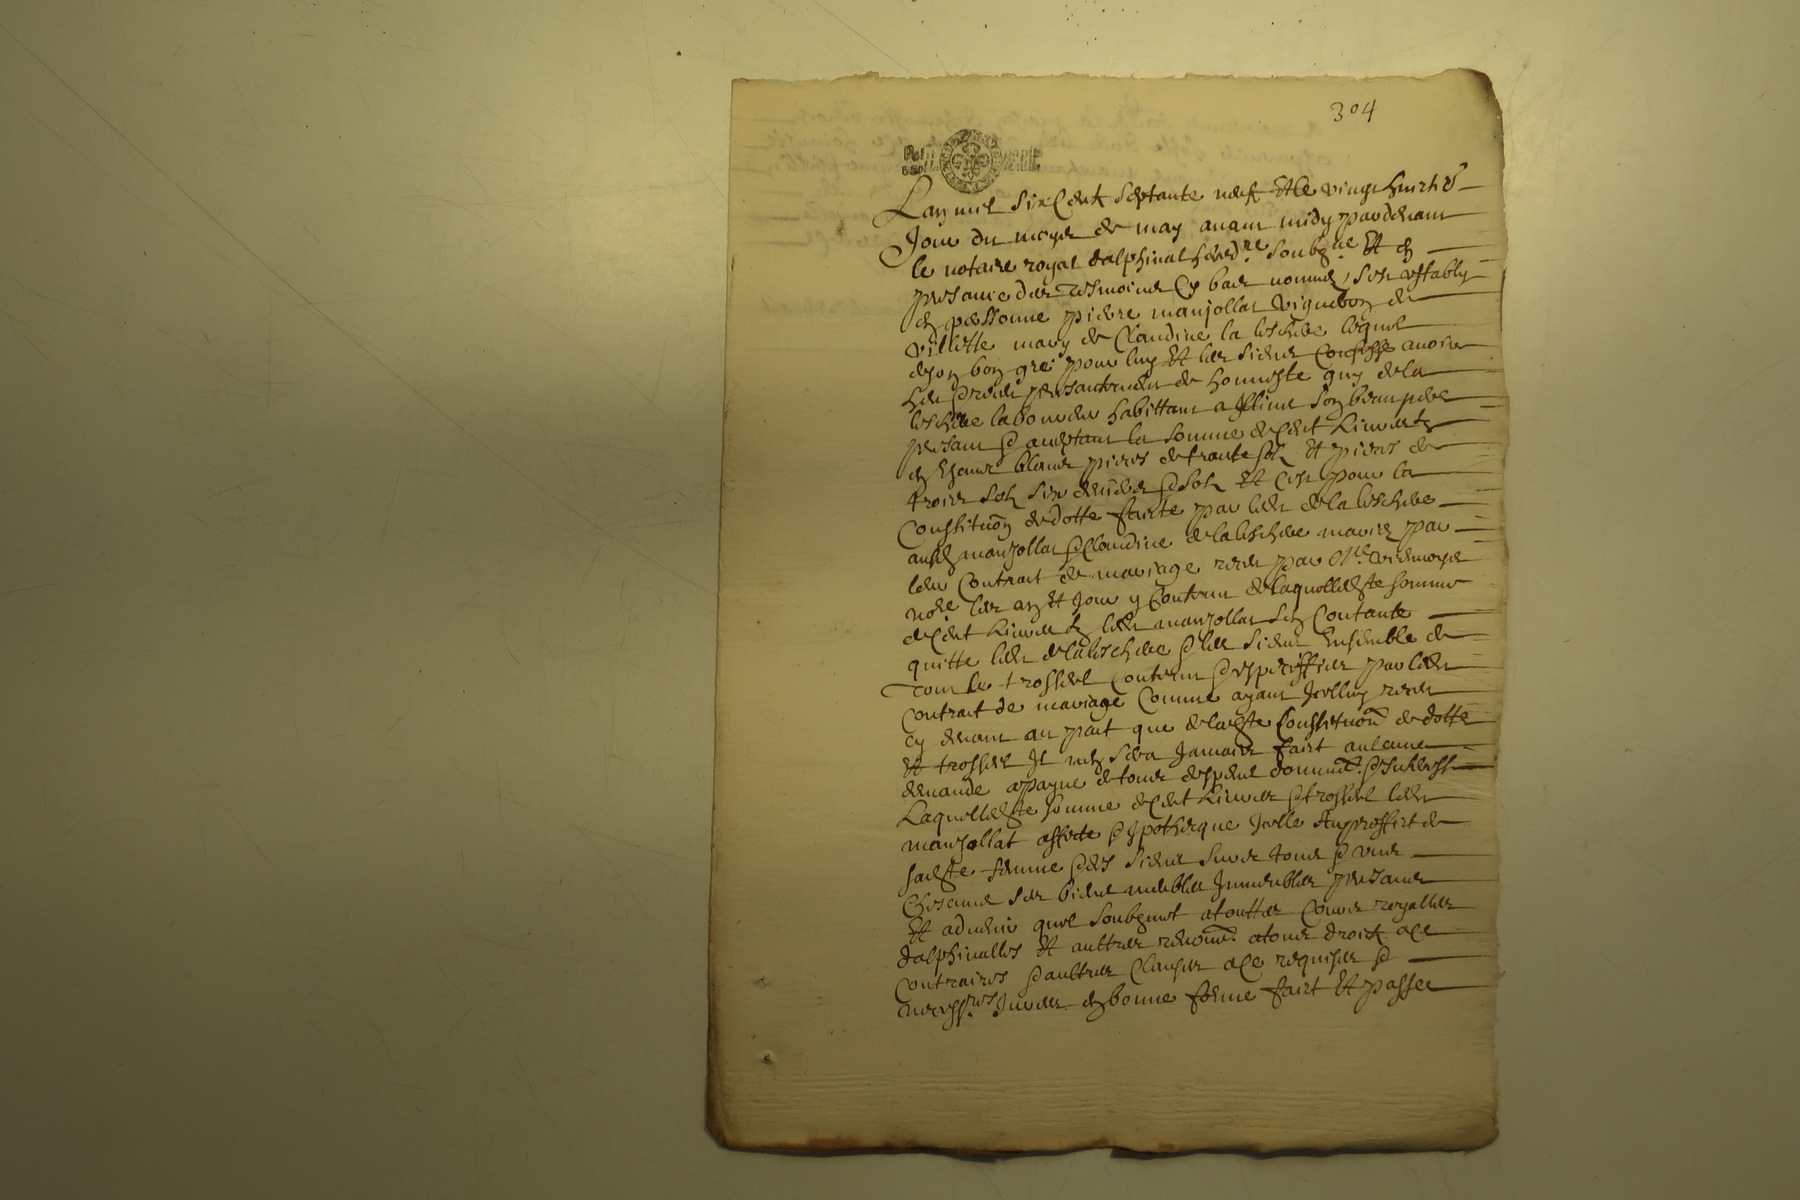 304
Lan mil six Cent septante neuf et le vingt huict^e
Jour du moys de may avant midy par devant
le notaire royal dalphinal hered^re soubz^ne Et en
presance des tesmoins cy bas nommes sest establye
en personne pierre manjollat vigneron de
villette mary de Claudine la leschere lequel
de son bon gre pour luy Et les siens Confesse avoir
heu presentement de honneste guy de la
leschere laboureur habittant a son beau pere
presant & aceptant la somme de Cent Livres tz
en escus blancs pieces de trante solz Et pieces de
trois solz six deniers & solz Et Cest pour la
Constitu^on de dotte faicte par led^t de la leschere
ausd manjollat & Claudine de la leschere maries par
leur Contract de mariage receu par M^e
no^re les an Et Jour y Contenu de laquelle d^te somme
de Cent Livres tz led^t manjollat sen Contante
quitte led^t de la leschere & les siens Ensemble de
tout le trossel Contenu & speciffier par led^t
Contract de mariage Comme ayant Jcelluy receu
cy devant au pact que de lad^te Constituon de dotte
Et trossel Jl nen sera Jamais faict aulcune
demande a payne de tous despens dommes & Jnterestz
Laquelle d^te somme de Cent Livres & trossel led^t
manjollat affecte & Jpotheque Jcelle Au proffict de
sad^te femme & des siens sur tous & uns
Chescuns ses biens meubles Jmmeubles presans
Et advenir quil soubzmet a touttes Cours royalles
dalphinalles Et aultres renon^t a tous droictz a Ce
Contraires & aultres Clauses a Ce requises &
necess^res Jurees en bonne forme faict Et passe